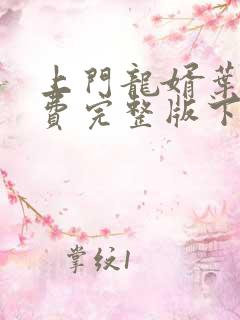 上門龍婿葉
費完整版下
掌纹1